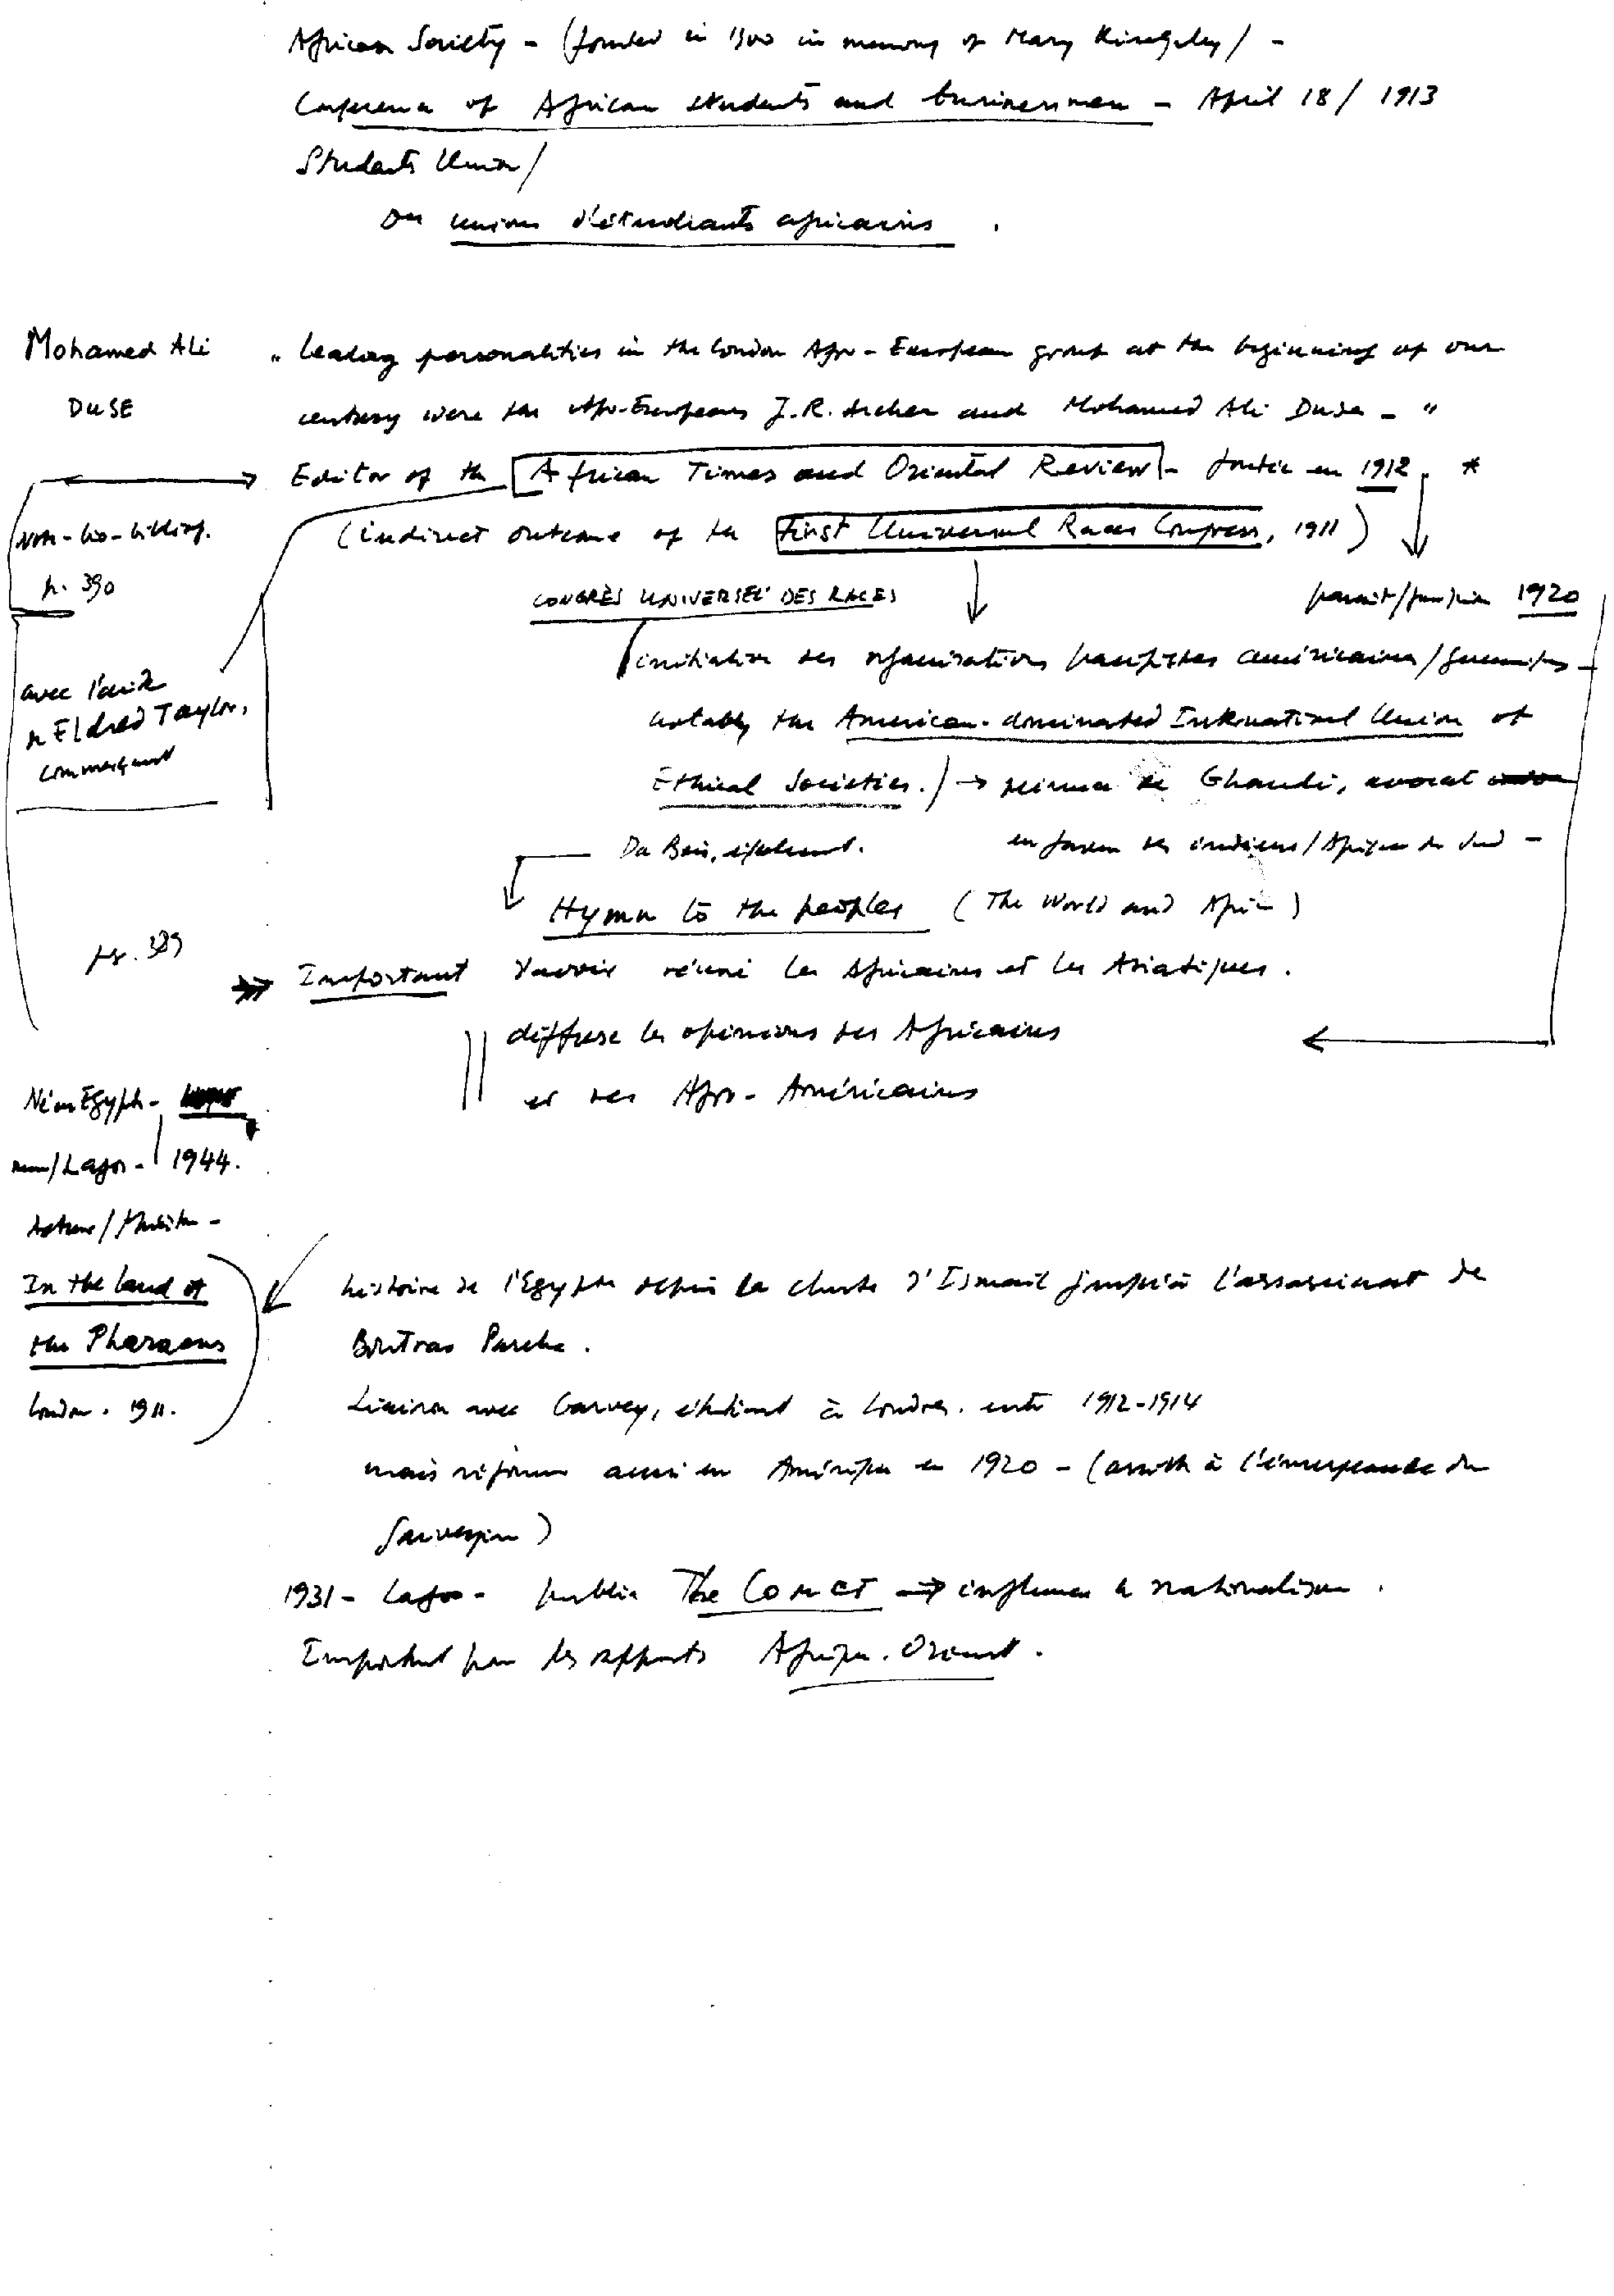 African Society - (founded in 1900 in memory of Mary Kingsley) -
Conference of African students and businessmen - April 18 / 1913
Students Union /
ou union d'étudiants africains .
Mohamed Ali
DUSE
" leading personalities in the London Afro-European group at the beginning of our
century were the Afro-Europeans J.R. Archer and Mohamed Ali Duse - "
Editor of the African Times and Oriental Review - fondée en 1912. *
(indirect outcome of the First Universal Races Congress, 1911)
Note-bio-bibliog.
p. 390
CONGRÈS UNIVERSEL DES RACES
paraît/jusqu'en 1920
initiative des organisations pacifistes américaines /
notably the American-dominated International Union of
Ethical Societies.) → présence de Ghandi, avocat
en faveur des indiens / Afrique du Sud -
avec l'aide
de Eldred Taylor,
commerçant
Du Bois, également.
Hymn to the peoples (The World and Africa)
pg. 389
Important d'avoir réuni les Africains et les Asiatiques.
diffuse les opinions des Africains
et des Afro-Américains
Né en Egypte -
mort/Lagos - 1944.
Acteur/
In the land of
the Pharaons
London. 1911.
histoire de l'Egypte depuis la chute d'Ismail jusqu'à l'assassinat de
Boutros Pacha.
Liaison avec Garvey, étudiant à Londres. entre 1912-1914
mais séjourne aussi en Amérique en 1920 - (assiste à l'émergence du
Garveyisme)
1931 - Lagos - publie The Comet → influence le nationalisme.
Important pour les rapports Afrique. Orient.